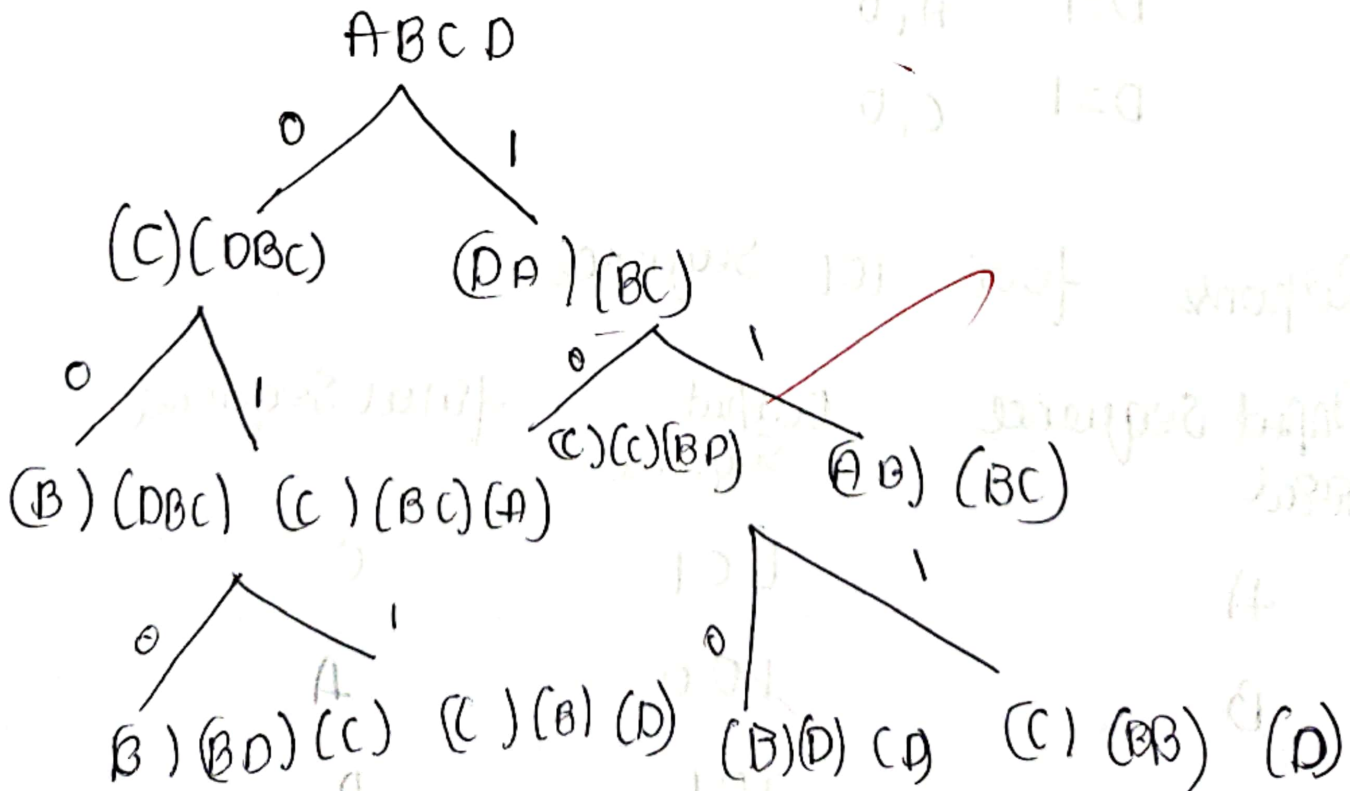 A B C D
0 1
(C)(DBC) (DA)(BC)
0 1 0 1
(B)(DBC) (C)(BC)(A) (C)(C)(BD) (AB)(BC)
0 1 0 1
B)(BD)(C) (C)(B)(D) (B)(D)(D) (C)(BB)(D)